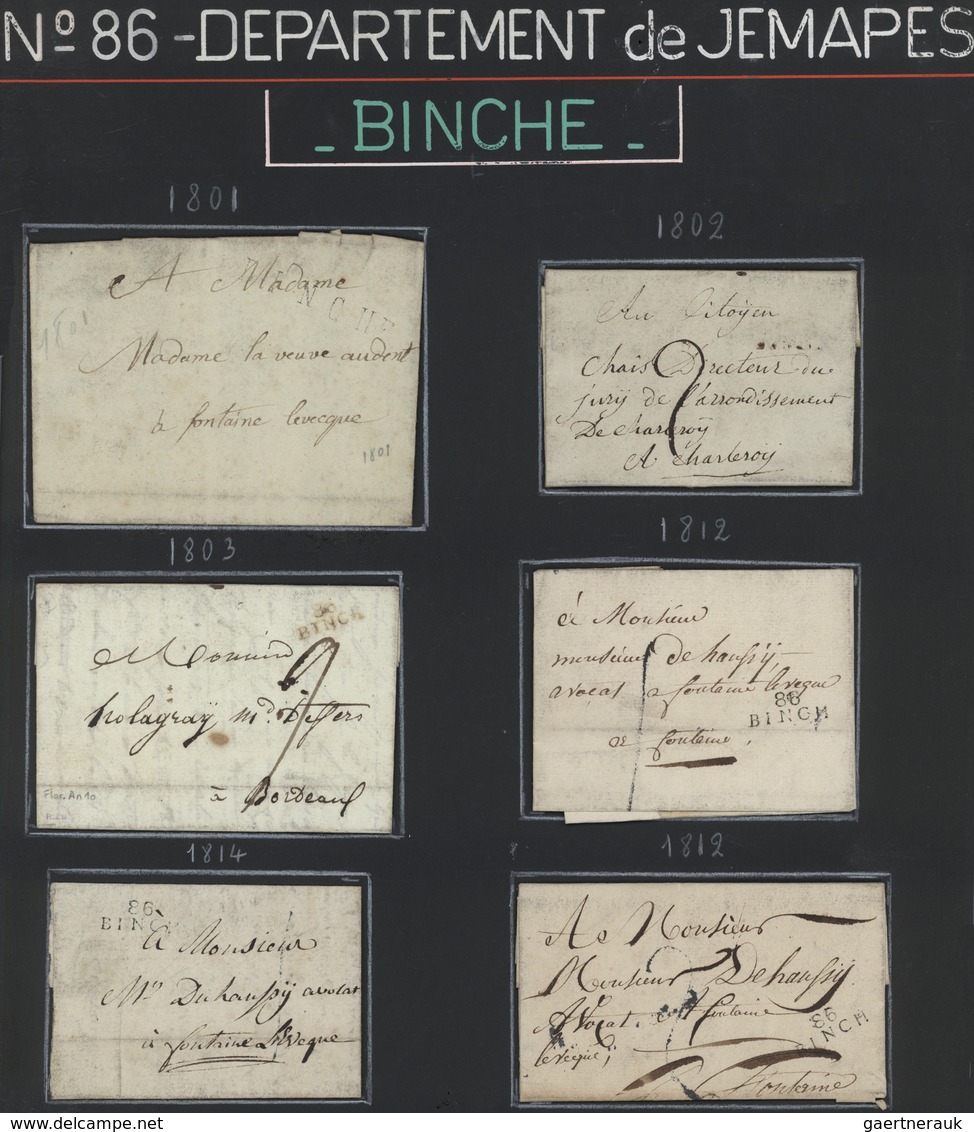 Nº 86 - DEPARTEMENT de JEMAPES
- BINCHE -
1801
A Madame
Madame la veuve audent
à fontaine levecque
1801
1801
1802
Au Citoÿen
chais Directeur du
jurÿ de l'arrondissement
De charleroÿ
A Charleroÿ
1803
86
BINCH
Monsieur
à Bordeaux
Flor. An 10
1812
à Monsieur
monsieur dehaussÿ
avocat a fontaine leveque
86
BINCH
a fontaine,
1814
86
BINCH
à Monsieur
Mr Duhaussÿ avocat
à fontaine Leveque
1812
A Monsieur
Monsieur Dehaussÿ
Avocat a fontaine
leveque;
86
BINCH
Fontaine
gaertnerauk